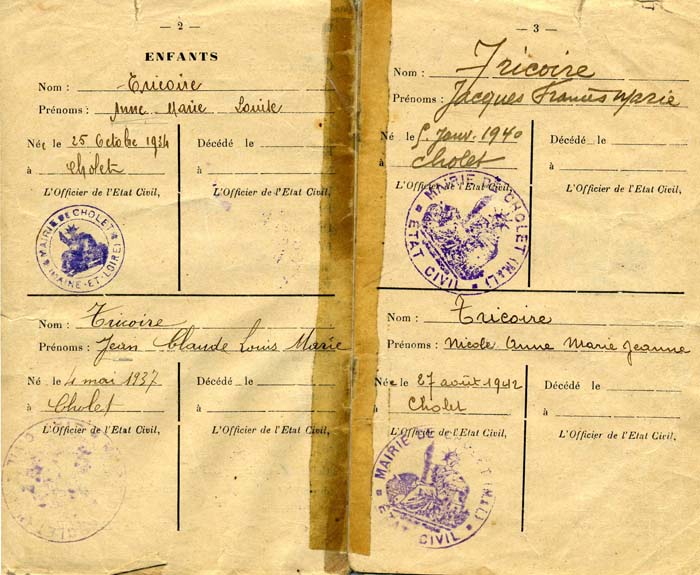 — 2 —
ENFANTS
Nom : Tricoire
Prénoms : Anne Marie Louise
Née le 25 Octobre 1934
Décédé le
à Cholet
à
L'Officier de l'Etat Civil,
L'Officier de l'Etat Civil,
MAIRIE DE CHOLET
(MAINE-ET-LOIRE)
Nom : Tricoire
Prénoms : Jean Claude Louis Marie
Né le 4 mai 1937
Décédé le
à Cholet
à
L'Officier de l'Etat Civil,
L'Officier de l'Etat Civil,
— 3 —
Nom : Tricoire
Prénoms : Jacques Francis Marie
Né le 5 Janv. 1940
Décédé le
à Cholet
à
L'Officier de l'Etat Civil,
L'Officier de l'Etat Civil,
MAIRIE DE CHOLET (M&L)
ÉTAT CIVIL
Nom : Tricoire
Prénoms : Nicole Anne Marie Jeanne
Née le 27 août 1942
Décédé le
à Cholet
à
L'Officier de l'Etat Civil,
L'Officier de l'Etat Civil,
MAIRIE DE
ÉTAT CIVIL